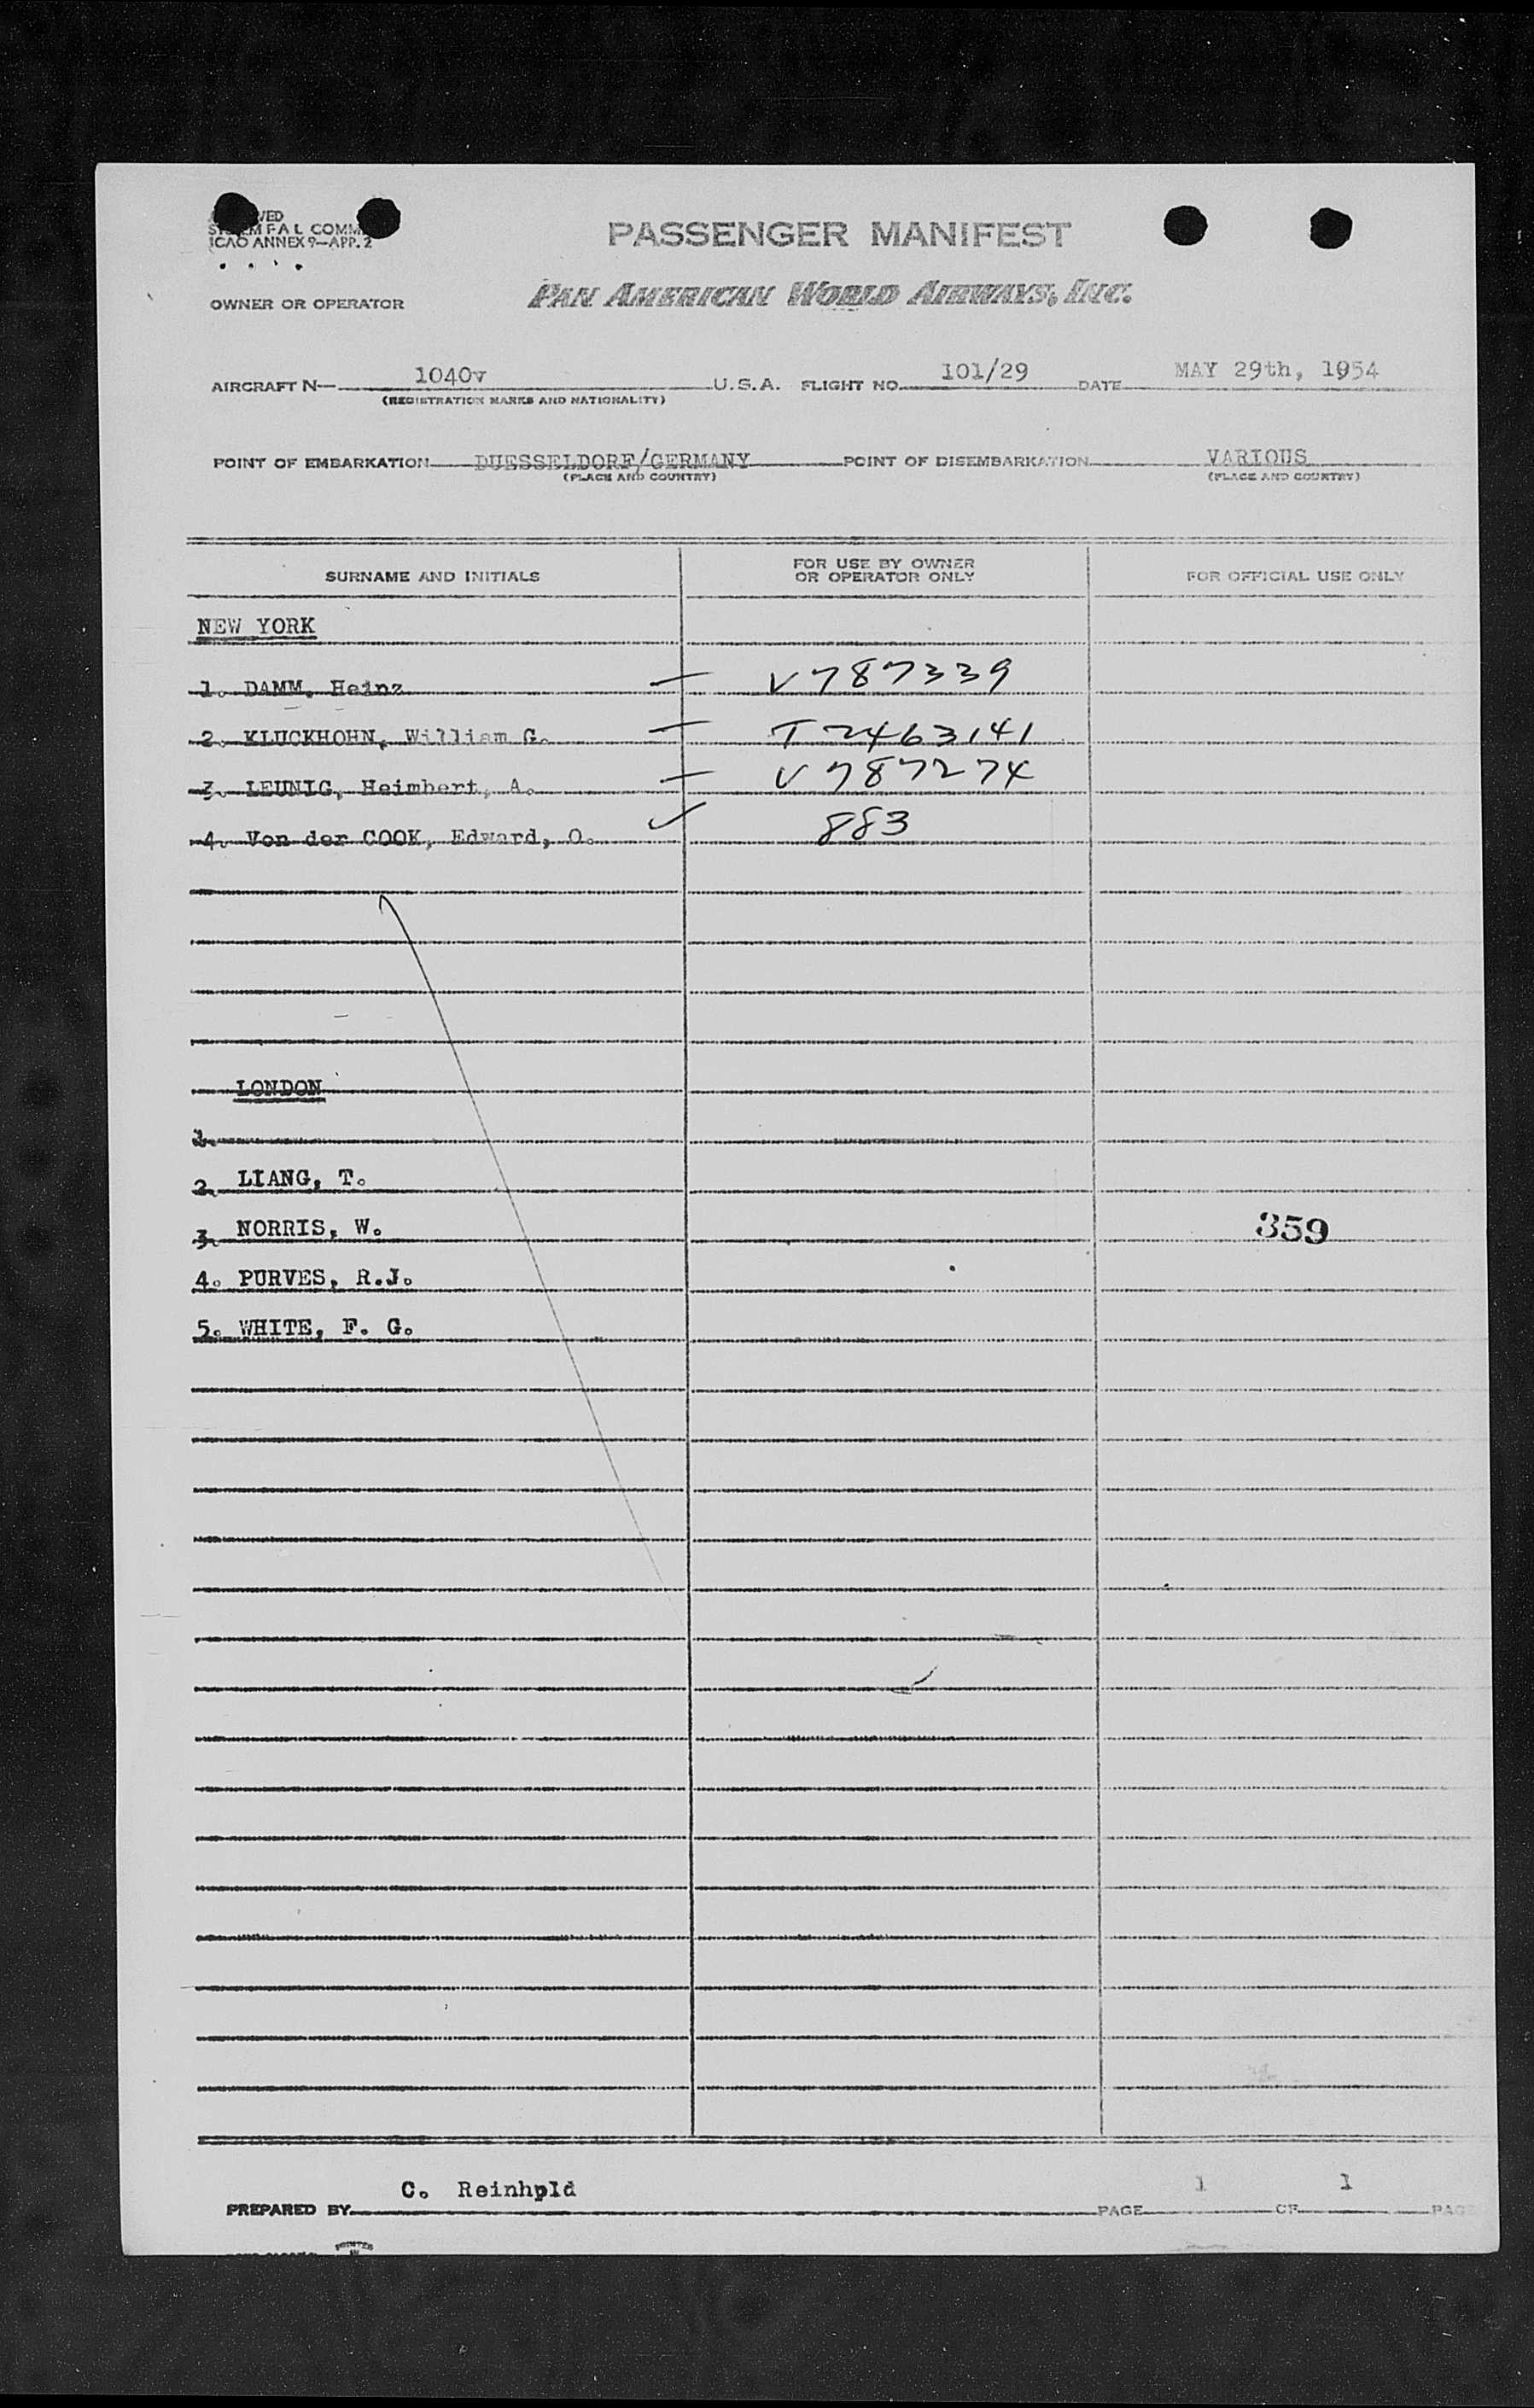 VED
SYSTEM F A L COMM
ICAO ANNEX 9—APP. 2
PASSENGER MANIFEST
OWNER OR OPERATOR PAN AMERICAN WORLD AIRWAYS, INC.
AIRCRAFT N— 1040v U.S.A. FLIGHT NO. 101/29 DATE MAY 29th, 1954
(REGISTRATION MARKS AND NATIONALITY)
POINT OF EMBARKATION DUESSELDORF/GERMANY POINT OF DISEMBARKATION VARIOUS
(PLACE AND COUNTRY) (PLACE AND COUNTRY)
SURNAME AND INITIALS FOR USE BY OWNER OR OPERATOR ONLY FOR OFFICIAL USE ONLY
NEW YORK
1. DAMM, Heinz — V787339
2. KLUCKHOHN, William G. — T2463141
3. LEUNIG, Heimbert, A. — V787274
4. Von der COOK, Edward, O. ✓ 883
LONDON
1.
2. LIANG, T.
3. NORRIS, W. 359
4. PURVES, R.J.
5. WHITE, F. G.
PREPARED BY C. Reinhpld PAGE 1 OF 1 PAG